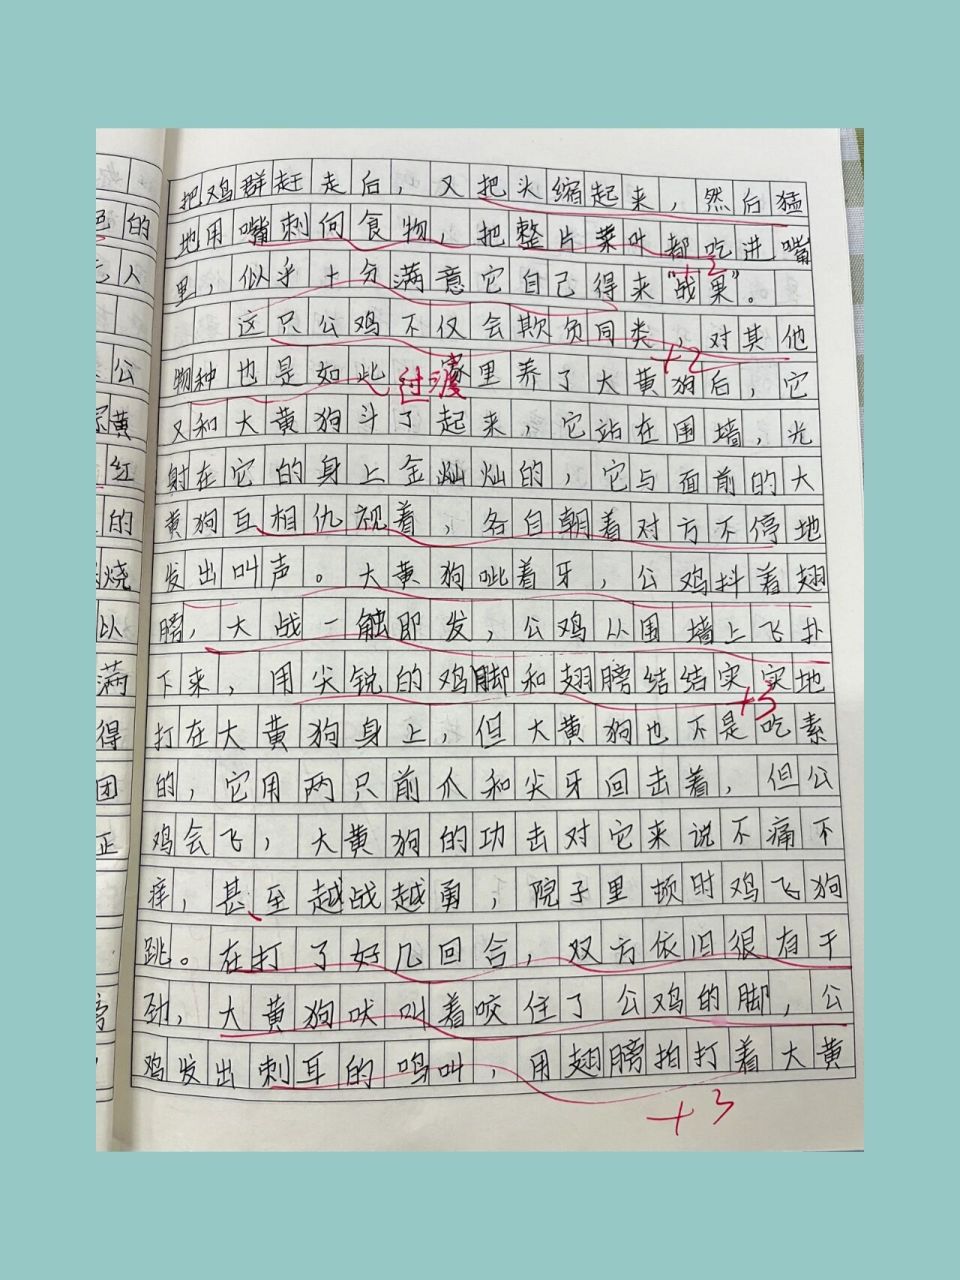 把鸡群赶走后，又把头缩起来，然后猛
地用嘴刺向食物，把整片菜叶都吃进嘴
+2
里，似乎十分满意它自己得来“战果”。
这只公鸡不仅会欺负同类，对其他
+2
物种也是如此。家里养了大黄狗后，它
过渡
又和大黄狗斗了起来，它站在围墙，光
射在它的身上金灿灿的，它与面前的大
黄狗互相仇视着，各自朝着对方不停地
发出叫声。大黄狗呲着牙，公鸡抖着翅
膀，大战一触即发，公鸡从围墙上飞扑
下来，用尖锐的鸡脚和翅膀结结实实地
+3
打在大黄狗身上，但大黄狗也不是吃素
的，它用两只前爪和尖牙回击着，但公
鸡会飞，大黄狗的功击对它来说不痛不
痒，甚至越战越勇，院子里顿时鸡飞狗
跳。在打了好几回合，双方依旧很有干
劲，大黄狗吠叫着咬住了公鸡的脚，公
鸡发出刺耳的鸣叫，用翅膀拍打着大黄
+3
色的
人
公
黄
红
的
烧
以
满
得
团
正